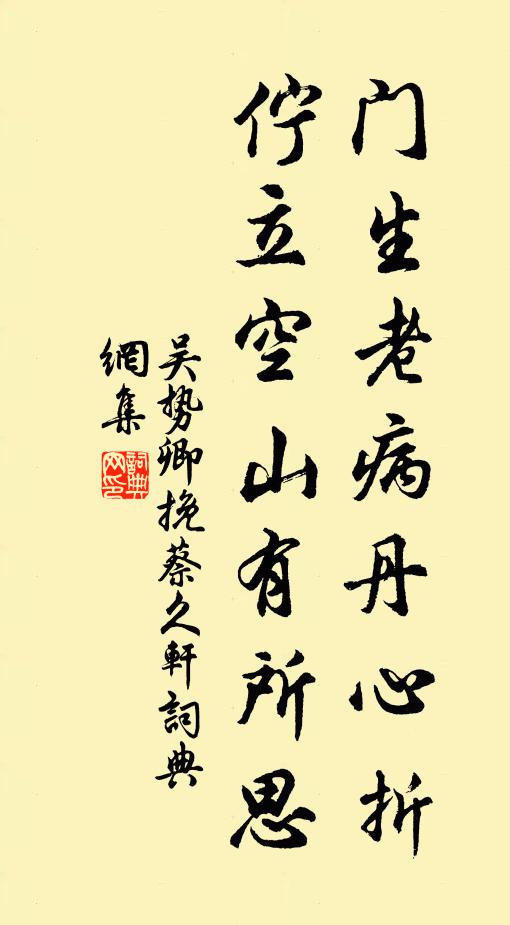 门生老病丹心折
佇立空山有所思
吴势卿挽蔡久軒詞典
網集
詞典
网印